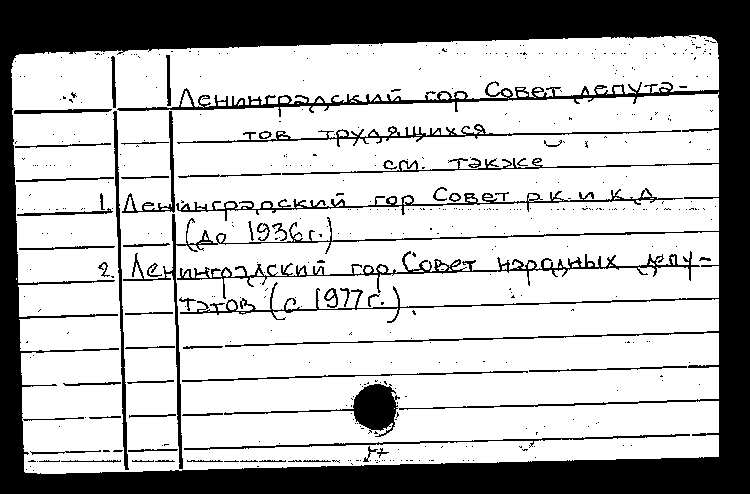 Ленинградский гор. Совет депута-
тов трудящихся.
см. также
1. Ленинградский гор Совет р.к. и к.д.
(до 1936г.)
2. Ленинградский гор. Совет народных депу-
татов (с 1977г.).